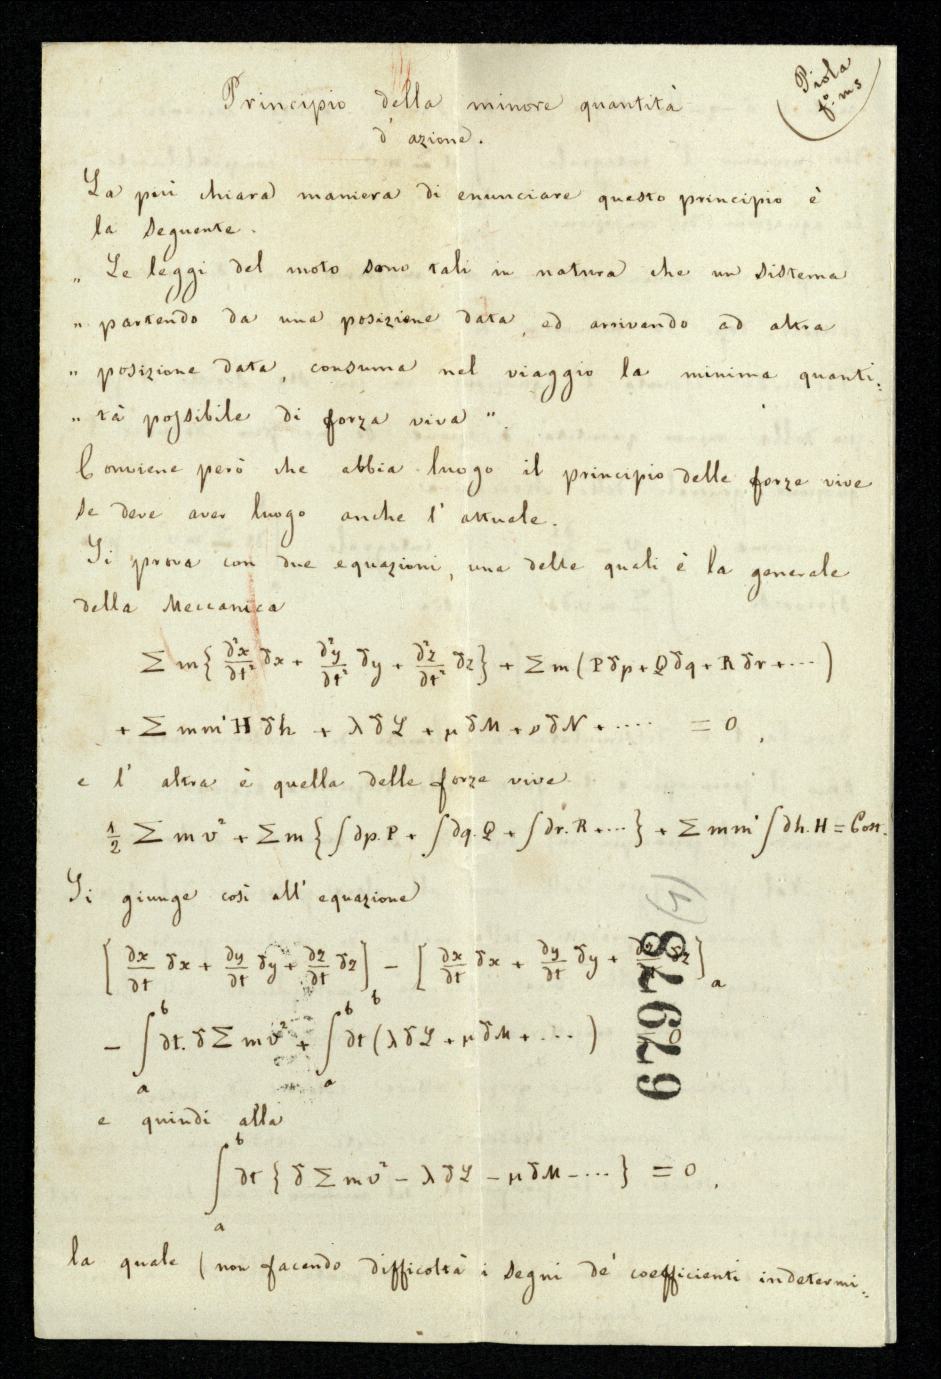 Piola
f.º ms
Principio della minore quantità
d'azione.
La più chiara maniera di enunciare questo principio è
la seguente.
„ Le leggi del moto sono tali in natura che un sistema
„ partendo da una posizione data, ed arrivando ad altra
„ posizione data, consuma nel viaggio la minima quanti:
„ tà possibile di forza viva ”.
Conviene però che abbia luogo il principio delle forze vive
se deve aver luogo anche l'attuale.
Si prova con due equazioni, una delle quali è la generale
della Meccanica
Σ m { ∂²x/∂t² δx + ∂²y/∂t² δy + ∂²z/∂t² δz } + Σ m ( P δp + Q δq + R δr + ···· )
+ Σ mm' H δh + λ δL + μ δM + ν δN + ····· = 0,
e l'altra è quella delle forze vive
1/2 Σ m v² + Σ m { ∫∂p.P + ∫∂q.Q + ∫∂r.R + ··· } + Σ mm' ∫∂h.H = Cost.
Si giunge così all'equazione
[ ∂x/∂t δx + ∂y/∂t δy + ∂z/∂t δz ]b − [ ∂x/∂t δx + ∂y/∂t δy + ∂z/∂t δz ]a
− ∫ₐᵇ ∂t. δ Σ m v² + ∫ₐᵇ ∂t ( λ δL + μ δM + ··· )
67978
e quindi alla
∫ₐᵇ ∂t { δ Σ m v² − λ δL − μ δM − ···· } = 0,
la quale ( non facendo difficoltà i segni de' coefficienti indetermi: